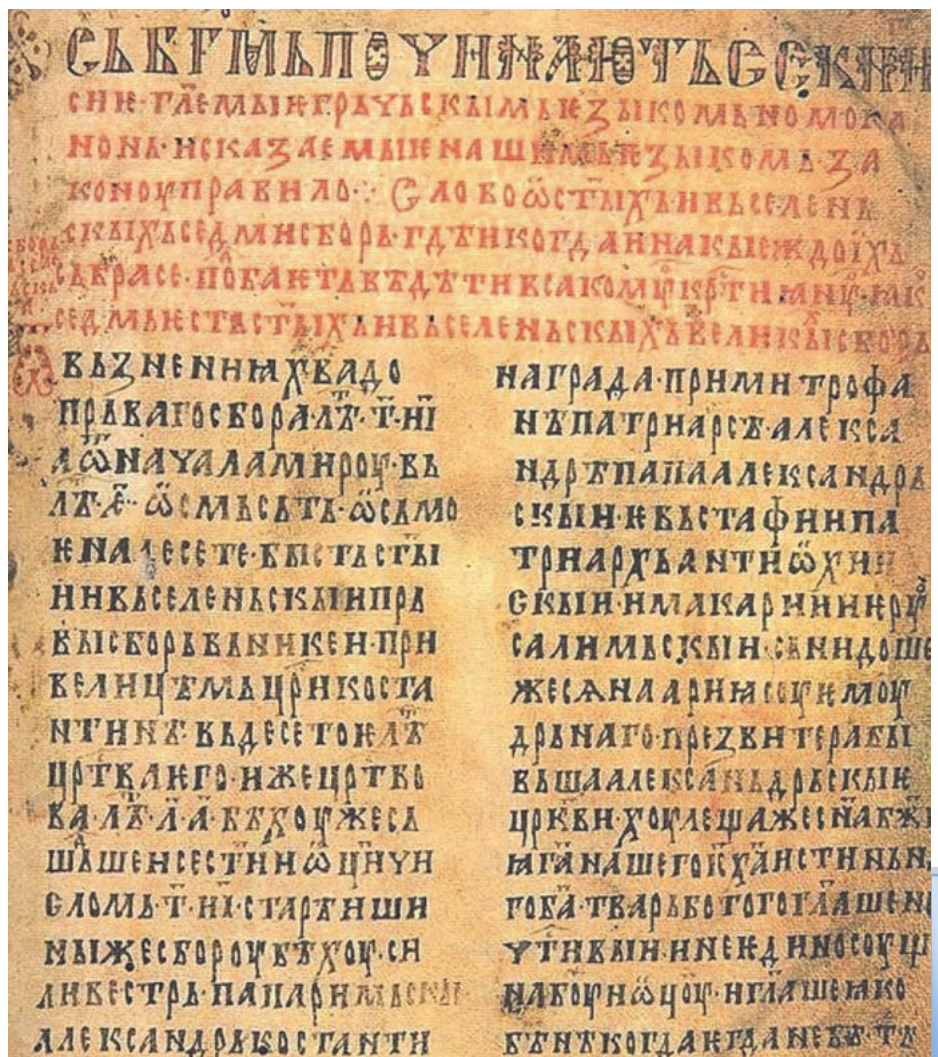 СЬ БГ҃МЬ ПОЧИНАЮТЬ СЕ КНИ
СИЕ· ГЛ҃ЕМЫѤ ГРЬЧЬСКЫМЬ ѤЗЫКОМЬ НОМОКА
НОНЬ· И СКАЗАЕМЫѤ НАШИМЬ ѤЗЫКОМЬ· ЗА
КОНОУ ПРАВИЛО·:· СЛОВО Ѿ СТ҃ЫХЬ И ВЬСЕЛЕНЬ
СКЫХЬ СЕДМИ СБОРЬ· ГДѢ И КОГДА И НА КЫѤЖДО ИХЬ
СЬБРАСЕ· ВѢДѢТИ
СЕДМЬ ѤСТЬ СТ҃ЫХЬ И ВЬСЕЛЕНЬСКЫХЬ ВЕЛИКЫ СБОРЬ
ВЬЗНЕНИꙖ ХВА ДО
ПРЬВАГО СБОРА· ЛѢТ· Т҃· НІ҃
А Ѿ НАЧАЛА МИРОУ· ВЬ
ЛѢ· Е҃· ѠСМЬСЬТЬ· ѠСЬМО
ѤНАДЕСЕТЕ· БЫСТЬ СТ҃Ы
И ИВЬСЕЛЕНЬСКЫИ ПРЬ
ВЫ СБОРЬ ВЬ НИКЕИ· ПРИ
ВЕЛИЦѢМЬ ЦРИ КОСТА
НТИНѢ· ВЬ ДЕСЕТОѤ ЛѢТ
ЦРТВА ѤГО· ИЖЕ ЦРТВО
ВА· ЛѢ· Л҃А· БѢХОУ ЖЕ СЬ
ШЬДШЕИ СЕ СТИИ Ѿ ЦИ ЧИ
СЛОМЬ· Т҃· НІ҃· СТАРѢИШИ
НЫ ЖЕ СБОРОУ БѢХОУ· СИ
ЛИВЕСТРЬ· ПАПА РИМЬСКЫ
АЛЕКСАНДРЬ КОСТАНТИ
НАГРАДА· ПРИ МИТРОФА
НѢ ПАТРИАРСѢ· АЛЕКСА
НДРѢ ПАПА АЛЕКСАНДРЬ
СКЫИ· ѤВЬСТАФИИ ПА
ТРИАРХЬ АНТИѠХИИ
СКЫИ· И МАКАРИИ ИѤРОУ
САЛИМЬСКЫИ· СЬНИДОШЕ
ЖЕ СЯ НА АРИꙖ СОУѤМОУ
ДРЬНАГО· ПРЕЗВИТЕРА БЫ
ВЬША АЛЕКСАНЬДРЬСКЫѤ
ЦРКВИ· ХОУЛЕЩА ЖЕ СНА БЖИ
ꙖГА НАШЕГО ІС ХА ИСТИНЬН
ГО БА· ТВАРЬ БО ТОГО ГЛАШЕ НЕ
ЧТИВЫИ· И НЕ ѤДИНОСОУЩ
НА БОУ И ѾЦОУ· И ГЛАШЕ ꙖКО
БѢ НѢКОГДА ѤГДА НЕ БѢ· ТѢ